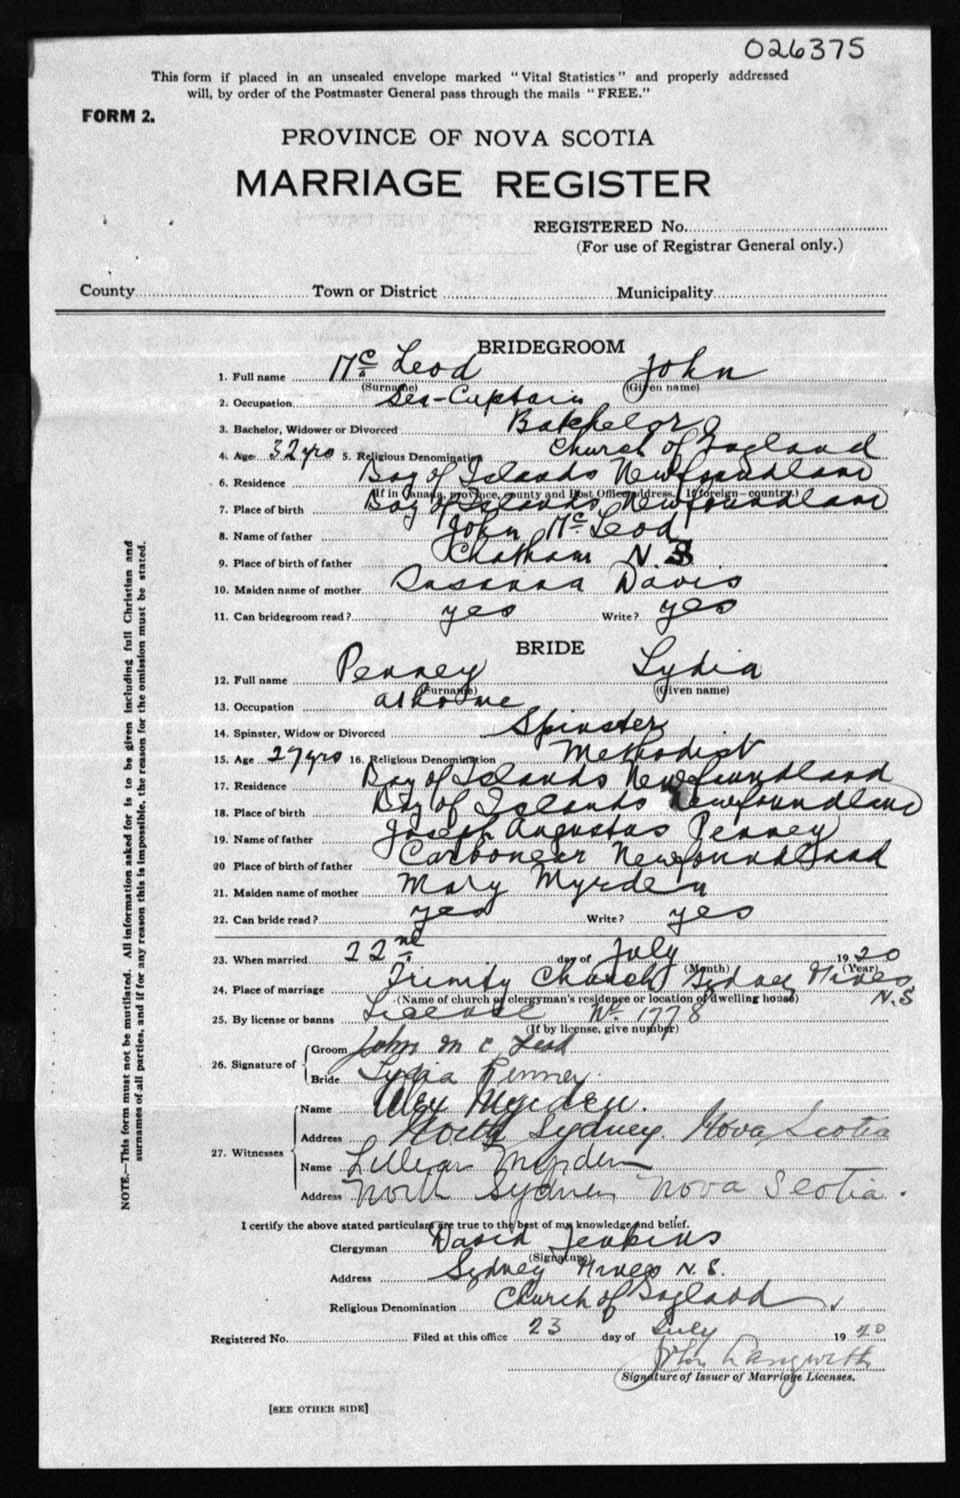 026375
This form if placed in an unsealed envelope marked "Vital Statistics" and properly addressed
will, by order of the Postmaster General pass through the mails "FREE."
FORM 2.
PROVINCE OF NOVA SCOTIA
MARRIAGE REGISTER
REGISTERED No.
(For use of Registrar General only.)
County Town or District Municipality
BRIDEGROOM
1. Full name Mc Leod John
(Surname) (Given name)
2. Occupation Sea-Captain
3. Bachelor, Widower or Divorced Batchelor
4. Age 32 yrs 5. Religious Denomination Church of England
6. Residence Bay of Islands Newfoundland
(If in Canada, province, county and Post Office address. If foreign—country.)
7. Place of birth Bay of Islands Newfoundland
8. Name of father John Mc Leod
9. Place of birth of father Chatham N.
10. Maiden name of mother Susanna Davis
11. Can bridegroom read? yes Write? yes
BRIDE
12. Full name Penney Lydia
(Surname) (Given name)
13. Occupation at home
14. Spinster, Widow or Divorced Spinster
15. Age 27 yrs 16. Religious Denomination Methodist
17. Residence Bay of Islands Newfoundland
18. Place of birth Bay of Islands Newfoundland
19. Name of father Joseph Angustus Penney
20 Place of birth of father Carbonear Newfoundland
21. Maiden name of mother Mary Myrden
22. Can bride read? yes Write? yes
23. When married 22nd day of July 1920
(Month) (Year)
24. Place of marriage Trinity Church Sydney Mines
N.S
(Name of church or clergyman's residence or location of dwelling house)
25. By license or banns License No. 1778
(If by license, give number)
26. Signature of Groom John Mc Leod
Bride Lydia Penney
27. Witnesses Name Alex Myrden.
Address North Sydney. Nova Scotia
Name Lillian Myrden
Address North Sydney Nova Scotia.
I certify the above stated particulars are true to the best of my knowledge and belief.
Clergyman David Jenkins
(Signature)
Address Sydney Mines N.S.
Religious Denomination Church of England
Registered No. Filed at this office 23 day of July 1920
John Langwith
Signature of Issuer of Marriage Licenses.
[SEE OTHER SIDE]
NOTE.—This form must not be mutilated. All information asked for is to be given including full Christian and
surnames of all parties, and if for any reason this is impossible, the reason for the omission must be stated.